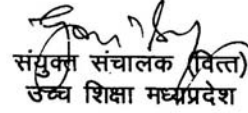 संयुक्त संचालक (वित्त)
उच्च शिक्षा मध्यप्रदेश